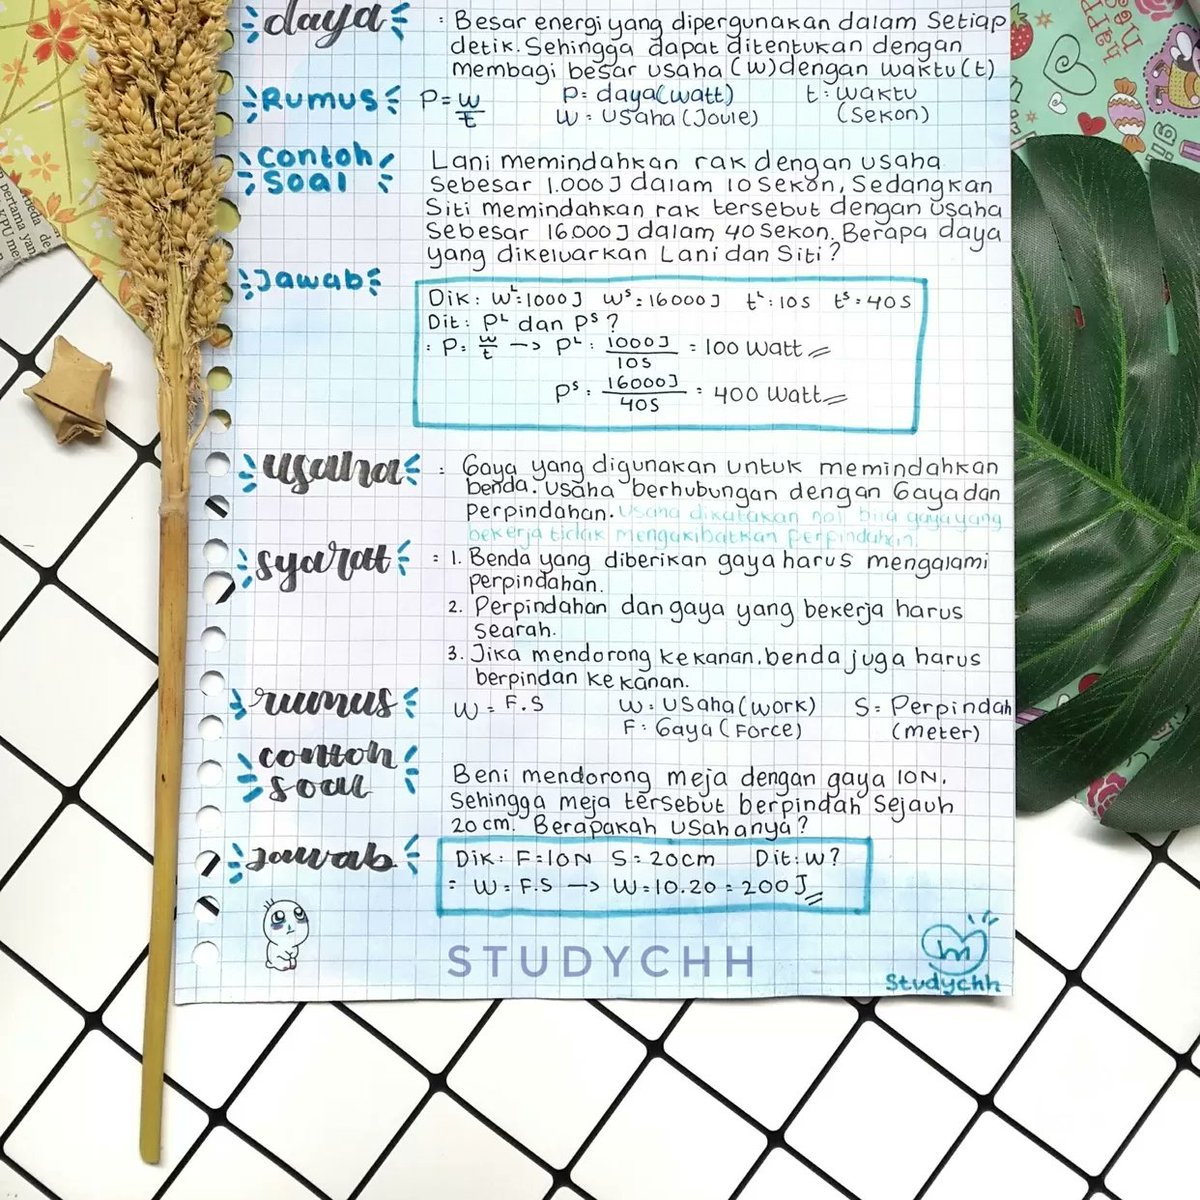 daya : Besar energi yang dipergunakan dalam Setiap
detik. Sehingga dapat ditentukan dengan
membagi besar usaha (w) dengan waktu (t)
Rumus P = w/t P = daya (watt) t : waktu
w : usaha (Joule) (Sekon)
Contoh Soal Lani memindahkan rak dengan usaha
Sebesar 1.000 J dalam 10 Sekon, Sedangkan
Siti memindahkan rak tersebut dengan usaha
Sebesar 16000 J dalam 40 Sekon. Berapa daya
yang dikeluarkan Lani dan Siti?
Jawab
Dik : W^L = 1000 J W^S = 16000 J t^L : 10 S t^S : 40 S
Dit : P^L dan P^S ?
: P = w/t -> P^L : 1000 J / 10 S = 100 Watt
P^S : 16000 J / 40 S = 400 Watt
usaha : Gaya yang digunakan untuk memindahkan
benda. Usaha berhubungan dengan Gaya dan
perpindahan. Usaha dikatakan nol bila gaya yang
bekerja tidak mengakibatkan perpindahan.
syarat : 1. Benda yang diberikan gaya harus mengalami
perpindahan.
2. Perpindahan dan gaya yang bekerja harus
searah.
3. Jika mendorong ke kanan, benda juga harus
berpindan ke kanan.
rumus W = F.S W : Usaha (work) S = Perpindah
F : Gaya (Force) (meter)
contoh soal Beni mendorong meja dengan gaya 10N.
Sehingga meja tersebut berpindah Sejauh
20 cm. Berapakah usahanya?
Jawab
Dik : F = 10N S = 20cm Dit : W?
= W = F.S -> W = 10.20 = 200 J
STUDYCHH
Studychh